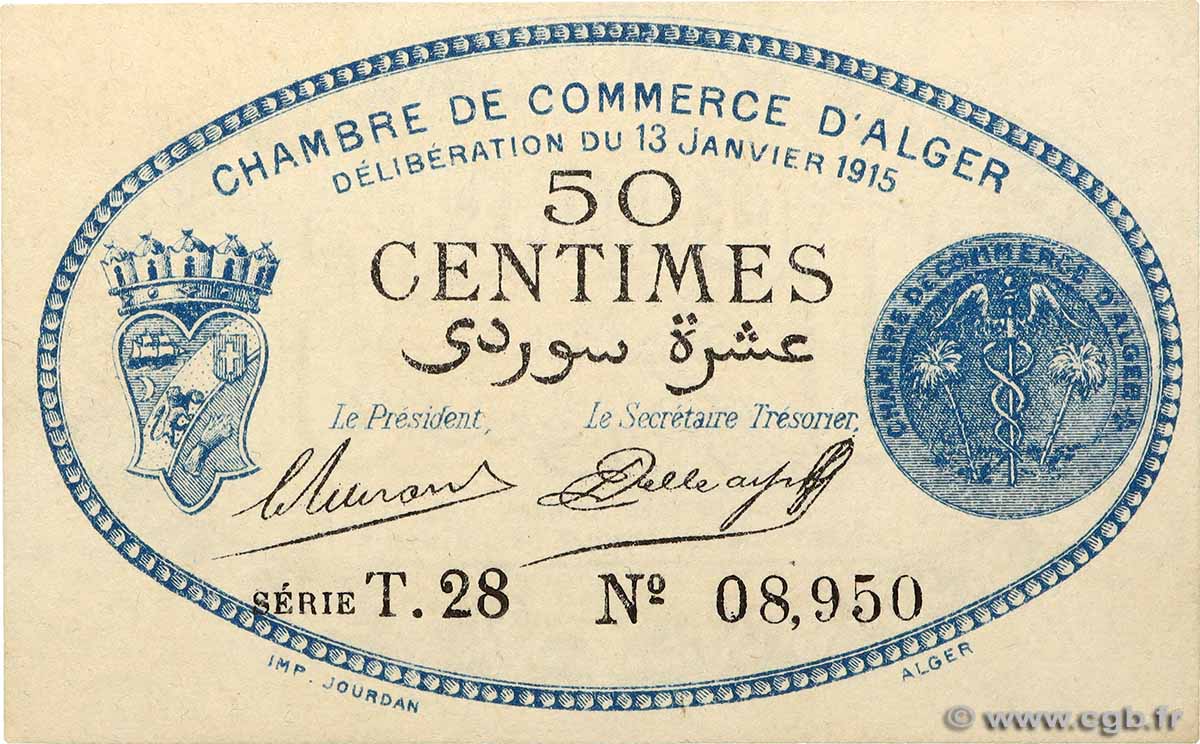 CHAMBRE DE COMMERCE D'ALGER
DÉLIBÉRATION DU 13 JANVIER 1915
50
CENTIMES
عشرة سوردى
Le Président, Le Secrétaire Trésorier,
CHAMBRE DE COMMERCE D'ALGER
SÉRIE T.28 Nº 08,950
IMP. JOURDAN ALGER
© www.cgb.fr